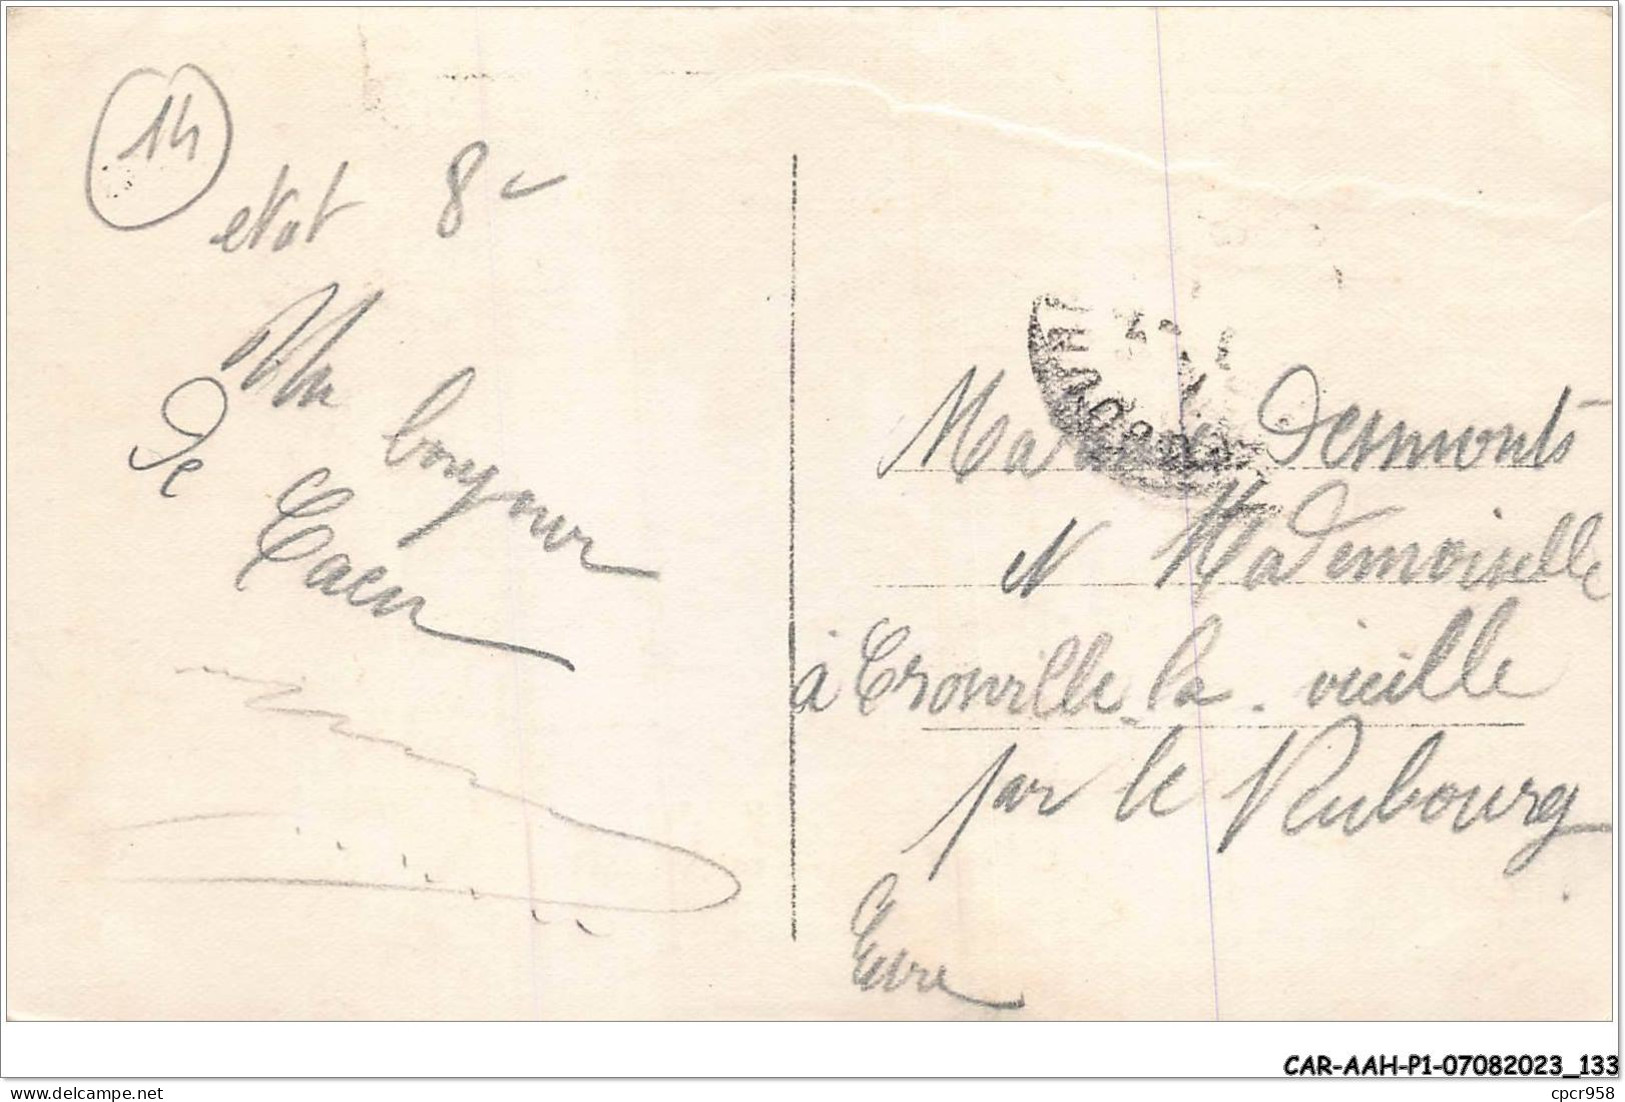 14
etat 8
Un bonjour
De Caen
Madame Desmonts
et Mademoiselle
à Trouville-la-vieille
par le Neubourg
Eure
CAR-AAH-P1-07082023_133
delcampe.net
cpcr958